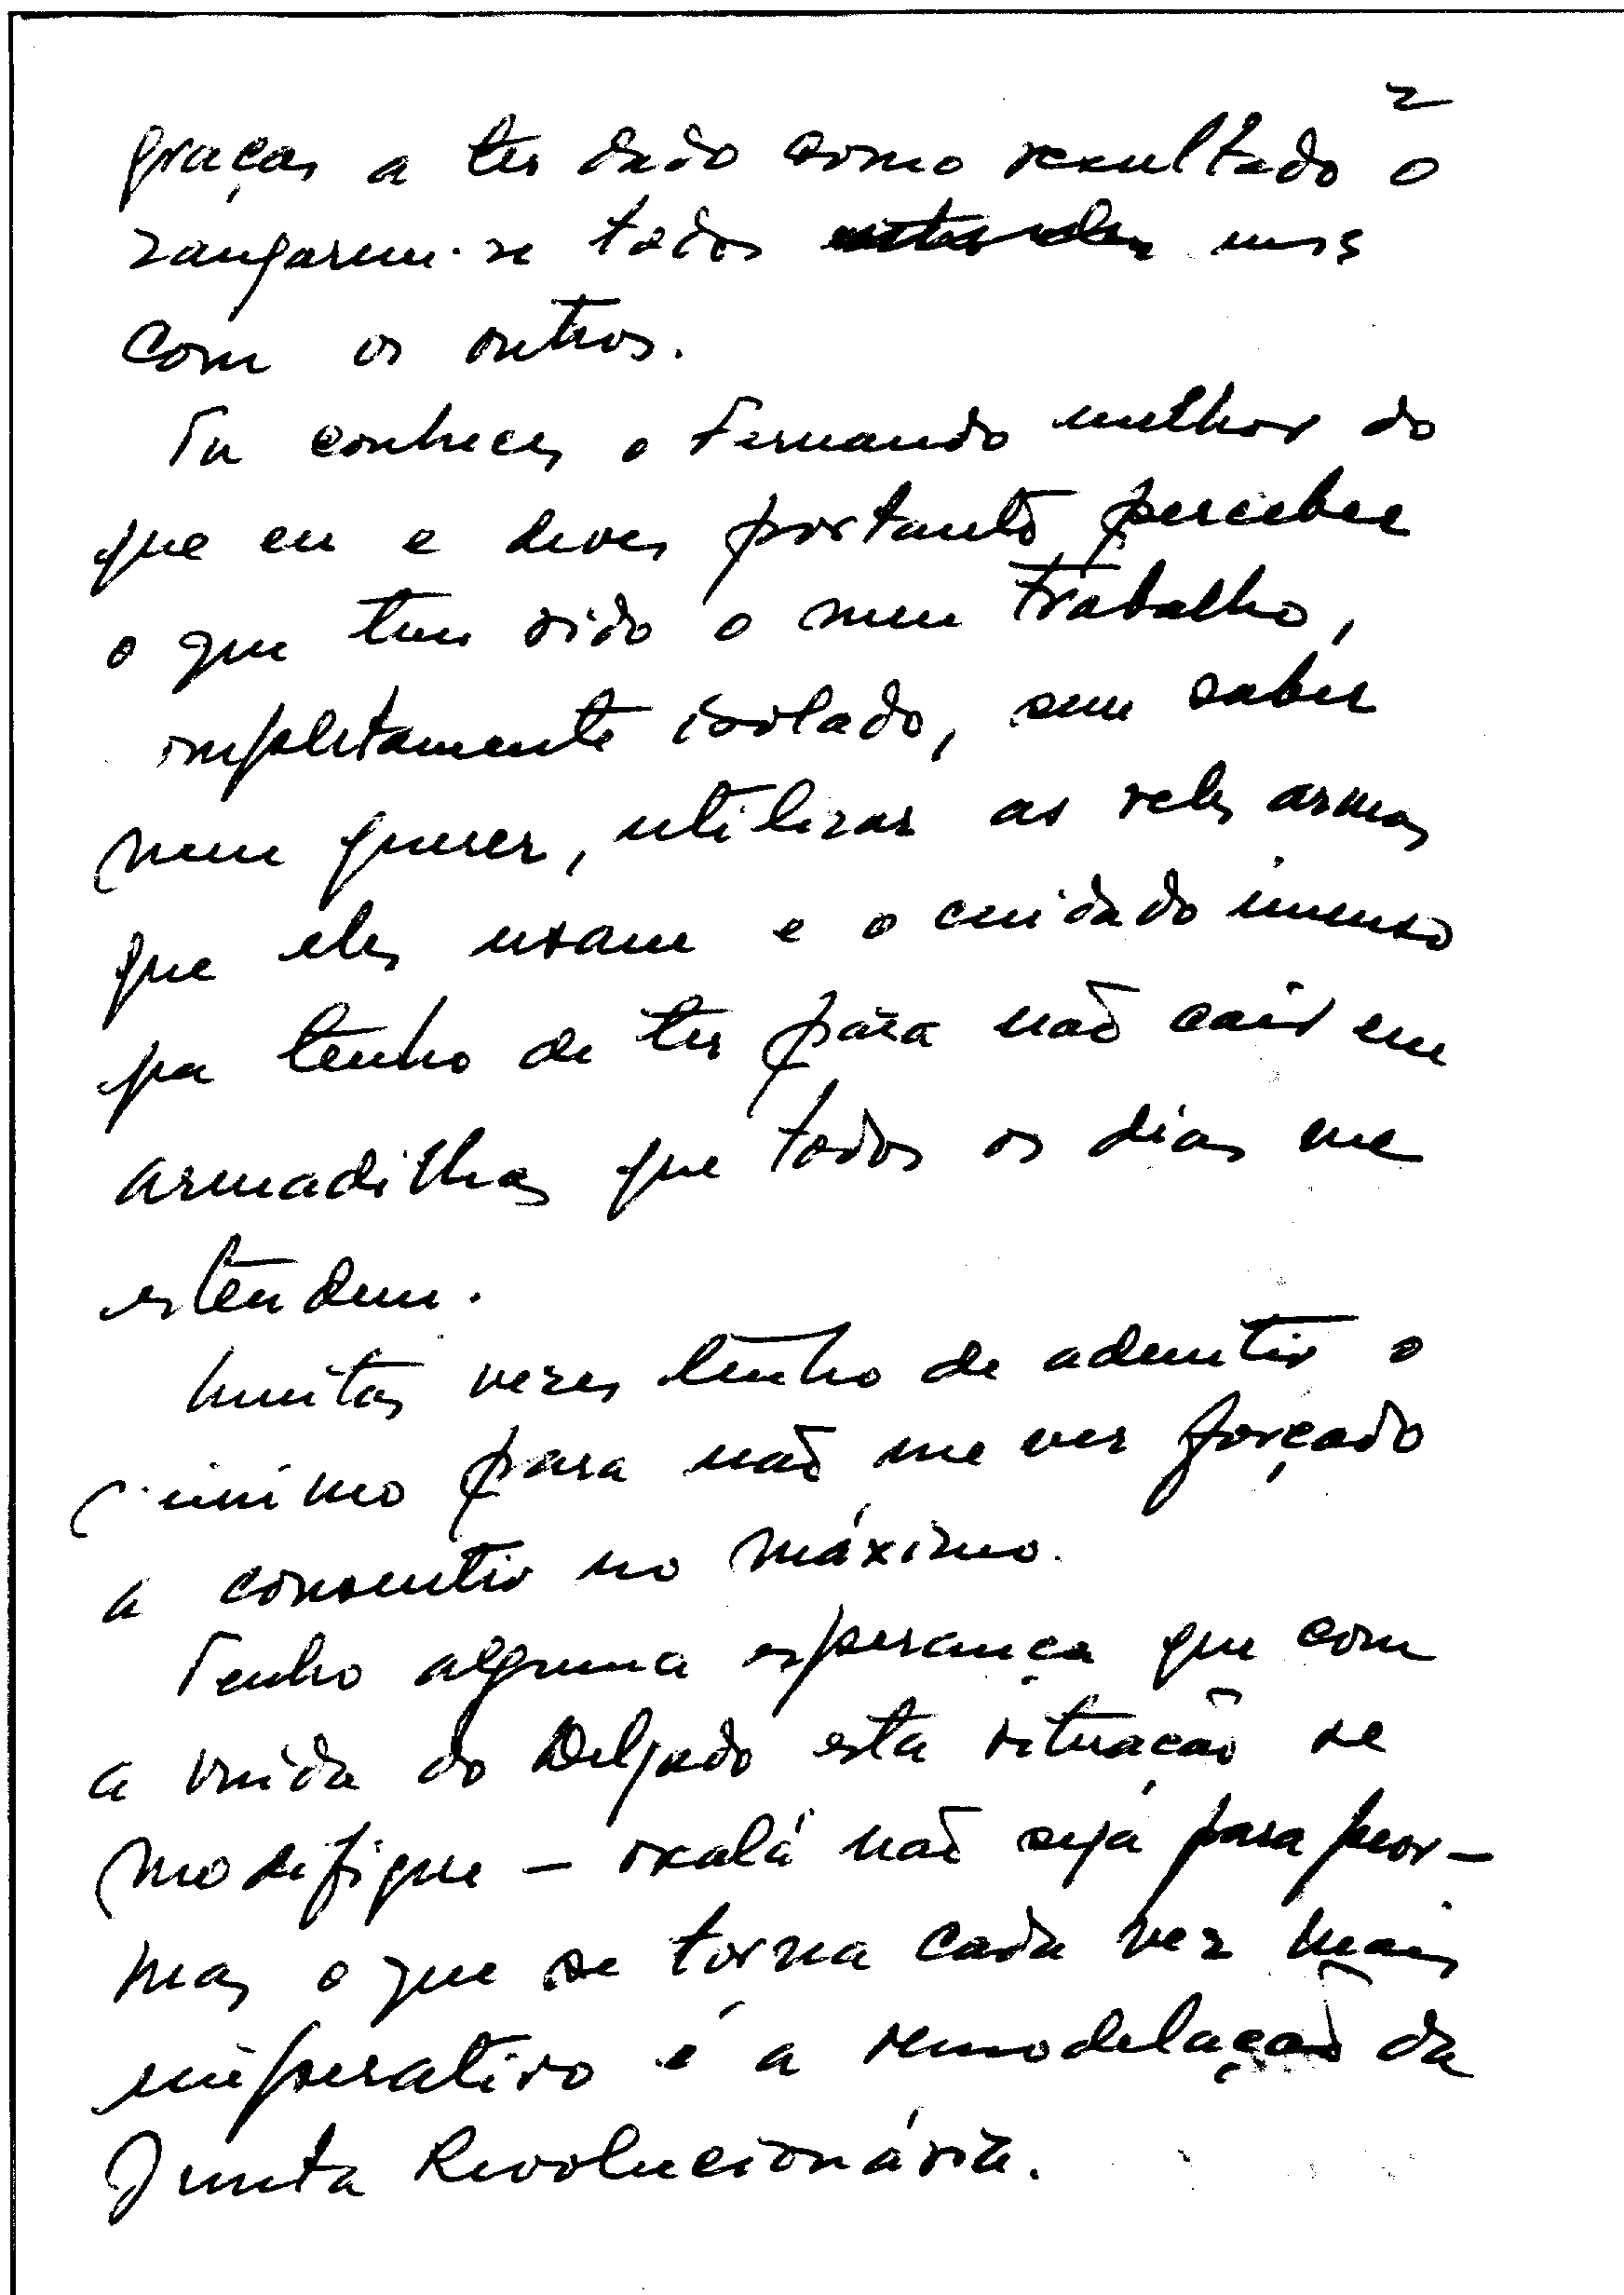 2
graças a ter dado como resultado o
zangarem-se todos uns
com os outros.
Tu conheces o Fernando melhor do
que eu e deves portanto perceber
o que tem sido o meu trabalho,
completamente isolado, sem saber
nem querer, utilizar as reles armas
que eles usam e o cuidado imenso
que tenho de ter para não cair em
armadilhas que todos os dias me
estendem.
Muitas vezes tenho de admitir o
mínimo para não me ver forçado
a consentir no máximo.
Tenho alguma esperança que com
a vinda do Delgado esta situação se
modifique – oxalá não seja para peor –
mas o que se torna cada vez mais
imperativo é a remodelação da
Junta Revolucionária.